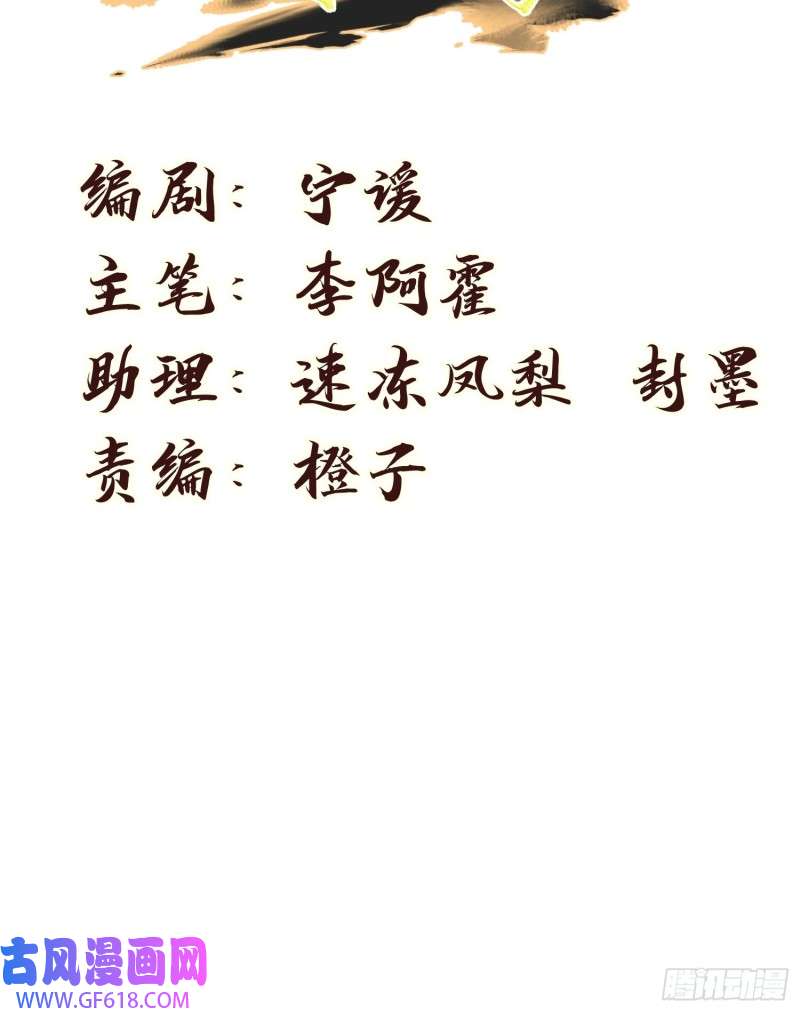 编剧：宁谖
主笔：李阿霍
助理：速冻凤梨 封墨
责编：橙子
古风漫画网
WWW.GF618.COM
腾讯动漫